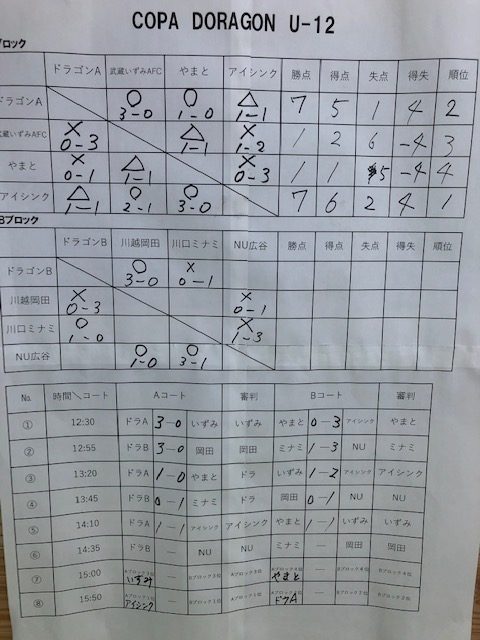 COPA DORAGON U-12
ブロック
ドラゴンA 武蔵いずみAFC やまと アイシンク 勝点 得点 失点 得失 順位
ドラゴンA ○ 3-0 ○ 1-0 △ 1-1 7 5 1 4 2
武蔵いずみAFC × 0-3 △ 1-1 × 1-2 1 2 6 -4 3
やまと × 0-1 △ 1-1 × 0-3 1 1 5 -4 4
アイシンク △ 1-1 ○ 2-1 ○ 3-0 7 6 2 4 1
Bブロック
ドラゴンB 川越岡田 川口ミナミ NU広谷 勝点 得点 失点 得失 順位
ドラゴンB ○ 3-0 × 0-1
川越岡田 × 0-3 × 0-1
川口ミナミ ○ 1-0 × 1-3
NU広谷 ○ 1-0 ○ 3-1
No. 時間\コート Aコート 審判 Bコート 審判
① 12:30 ドラA 3-0 いずみ いずみ やまと 0-3 アイシンク やまと
② 12:55 ドラB 3-0 岡田 岡田 ミナミ 1-3 NU ミナミ
③ 13:20 ドラA 1-0 やまと ドラ いずみ 1-2 アイシンク アイシンク
④ 13:45 ドラB 0-1 ミナミ ドラ 岡田 0-1 NU NU
⑤ 14:10 ドラA 1-1 アイシンク アイシンク やまと 1-1 いずみ いずみ
⑥ 14:35 ドラB — NU NU ミナミ — 岡田 岡田
⑦ 15:00 Aブロック3位 いずみ — Bブロック3位 Aブロック3位 Aブロック4位 やまと — Bブロック4位 Bブロック4位
⑧ 15:50 Aブロック1位 アイシンク — Bブロック1位 Aブロック1位 Aブロック2位 ドラA — Bブロック2位 Bブロック2位